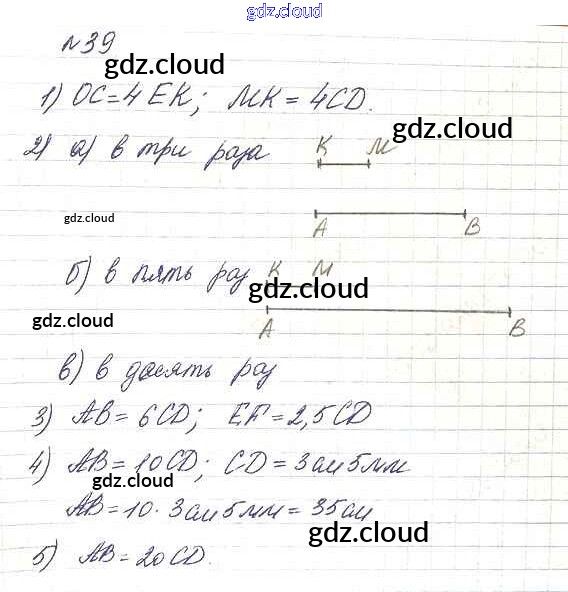 gdz.cloud
№39
gdz.cloud
1) OC=4 EK; MK = 4CD.
gdz.cloud
2) а) в три раза K M
gdz.cloud
A B
б) в пять раз K M
gdz.cloud
gdz.cloud
A B
в) в десять раз
3) AB = 6CD; EF = 2,5CD
gdz.cloud
4) AB = 10CD; CD = 3см 5мм
gdz.cloud
AB = 10 · 3см 5мм = 35см
gdz.cloud
5) AB = 20CD.